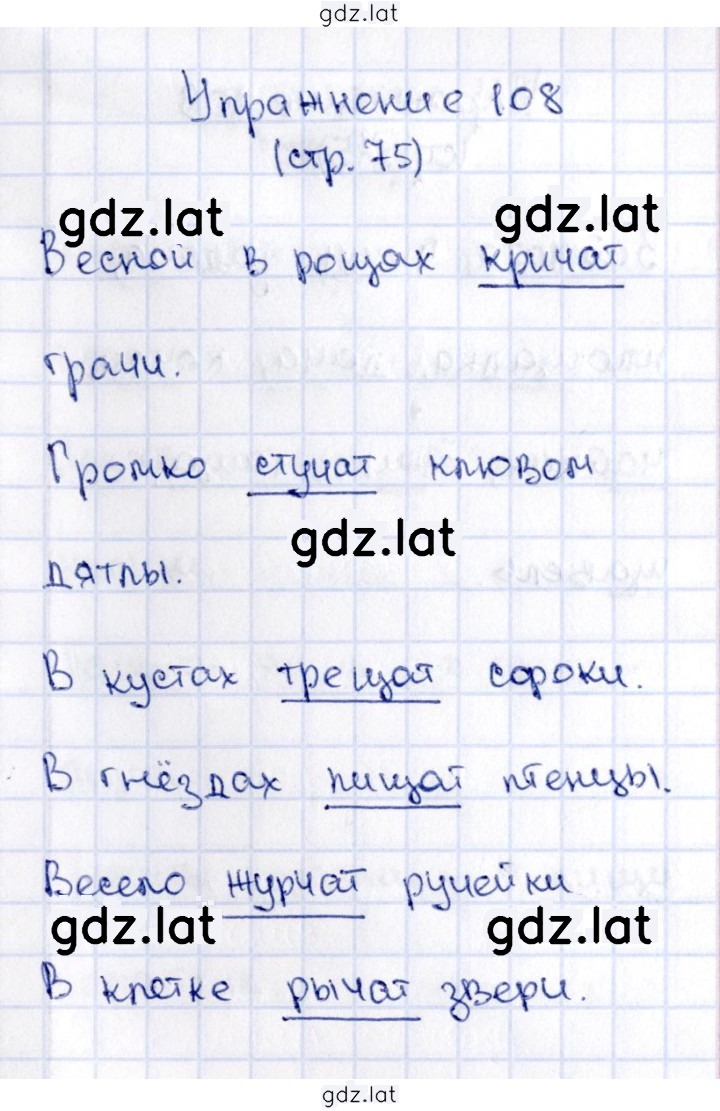 gdz.lat
Упражнение 108
(стр. 75)
gdz.lat gdz.lat
Весной в рощах кричат
грачи.
Громко стучат клювом
gdz.lat
дятлы.
В кустах трещат сороки.
В гнёздах пищат птенцы.
Весело журчат ручейки
gdz.lat gdz.lat
В клетке рычат звери.
gdz.lat